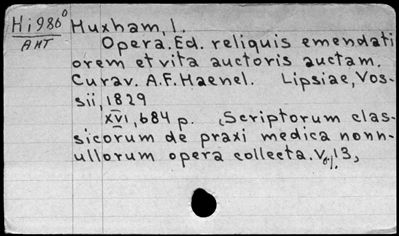 Hi980° Huxham, I.
AHT
Opera. Ed. reliquis emendati
orem et vita auctoris auctam.
Curav. A.F. Haenel. Lipsiae, Vos-
sii, 1829
XVI, 684 p. (Scriptorum clas-
sicorum de praxi medica nonn-
ullorum opera collecta. Vol. 13)